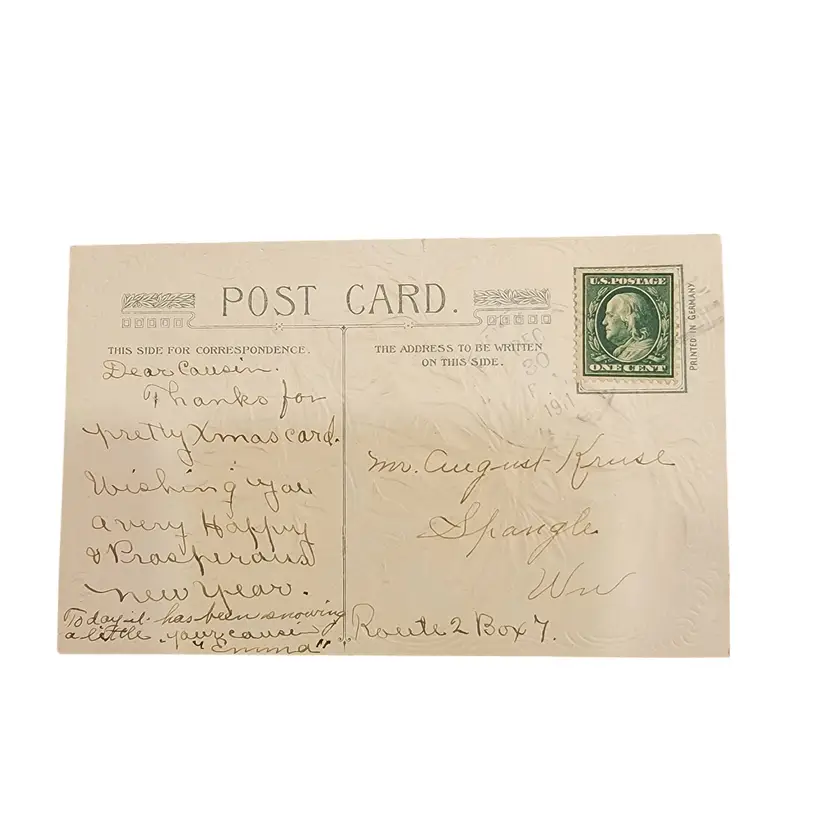 POST CARD.
THIS SIDE FOR CORRESPONDENCE.
Dear Cousin.
Thanks for
pretty Xmas card.
Wishing you
a very Happy
& Prosperous
New Year.
Today it has been snowing
a little, your cousin
"Emma"
THE ADDRESS TO BE WRITTEN
ON THIS SIDE.
U.S. POSTAGE
ONE CENT
PRINTED IN GERMANY
DEC
30
1911
Mr. August Kruse
Spangle
Wn
Route 2 Box 7.